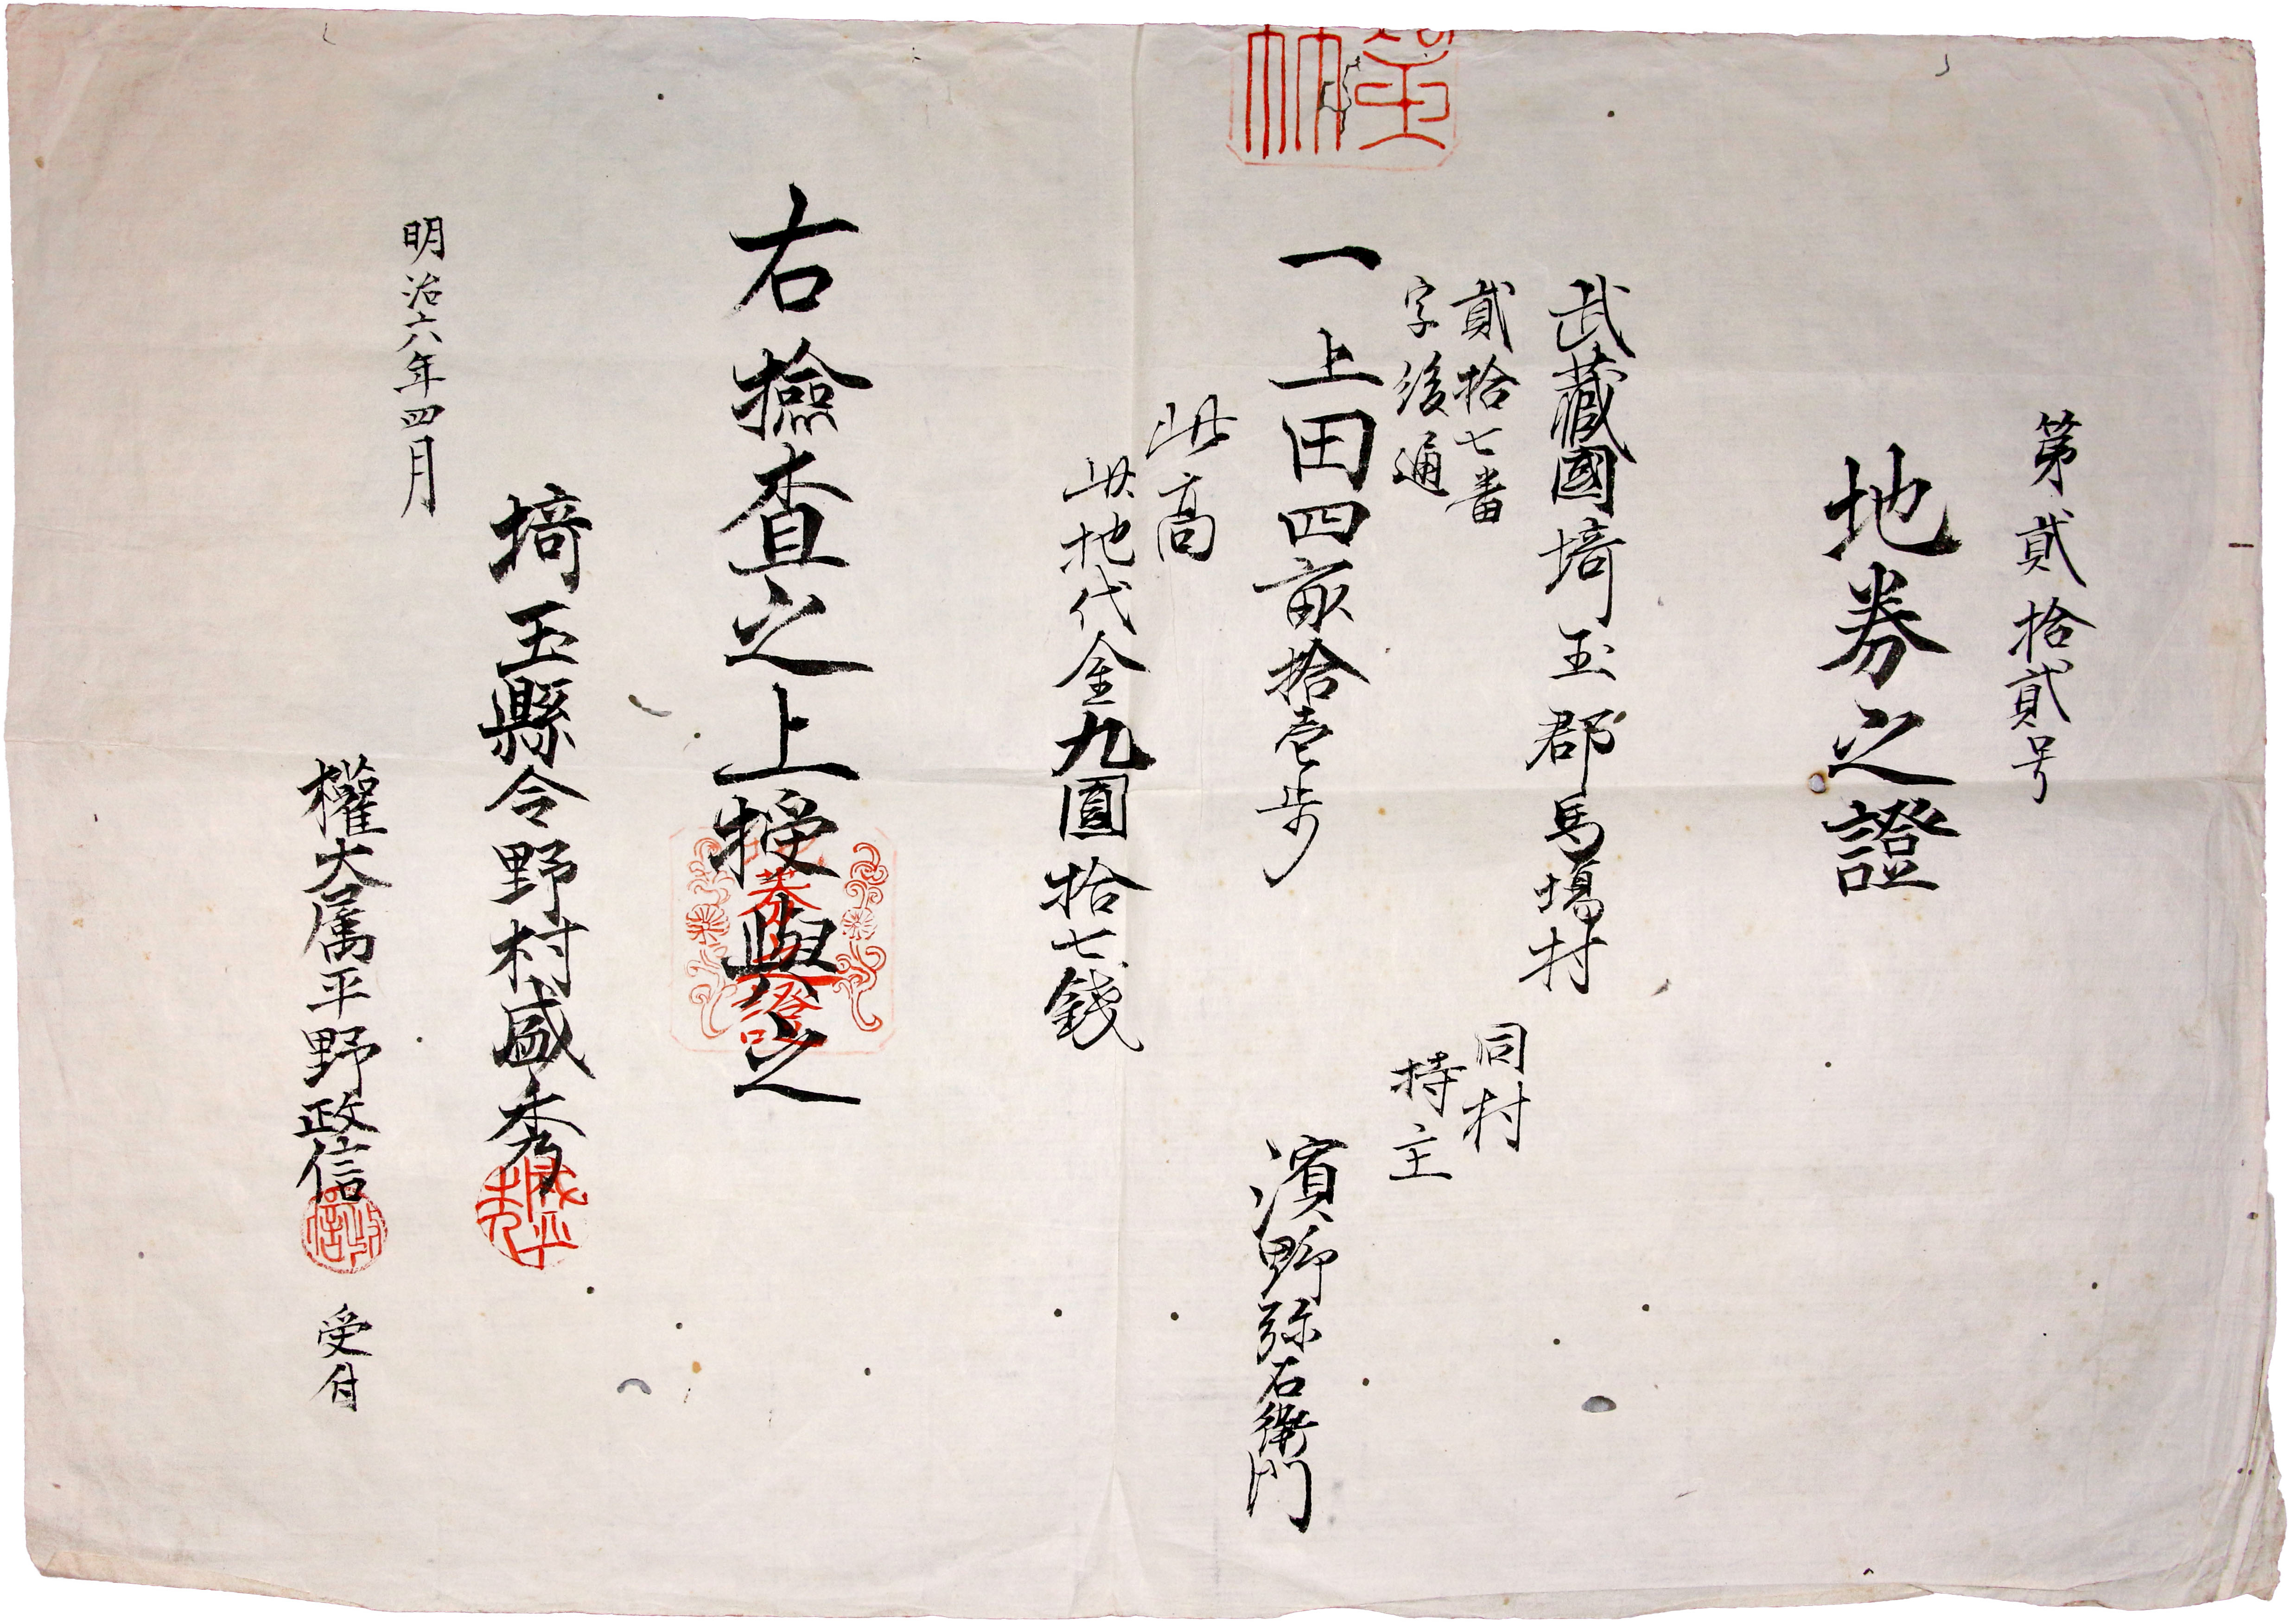 第貳拾貳号
地券之證
武藏國埼玉郡馬場村
貳拾七番
字後通
同村
持主
一上田四畝拾壱歩
濱野弥右衛門
此高
此地代金九圓拾七錢
右撿査之上授與之
埼玉縣令野村盛秀
明治六年四月
權大属平野政信
受付
券之證